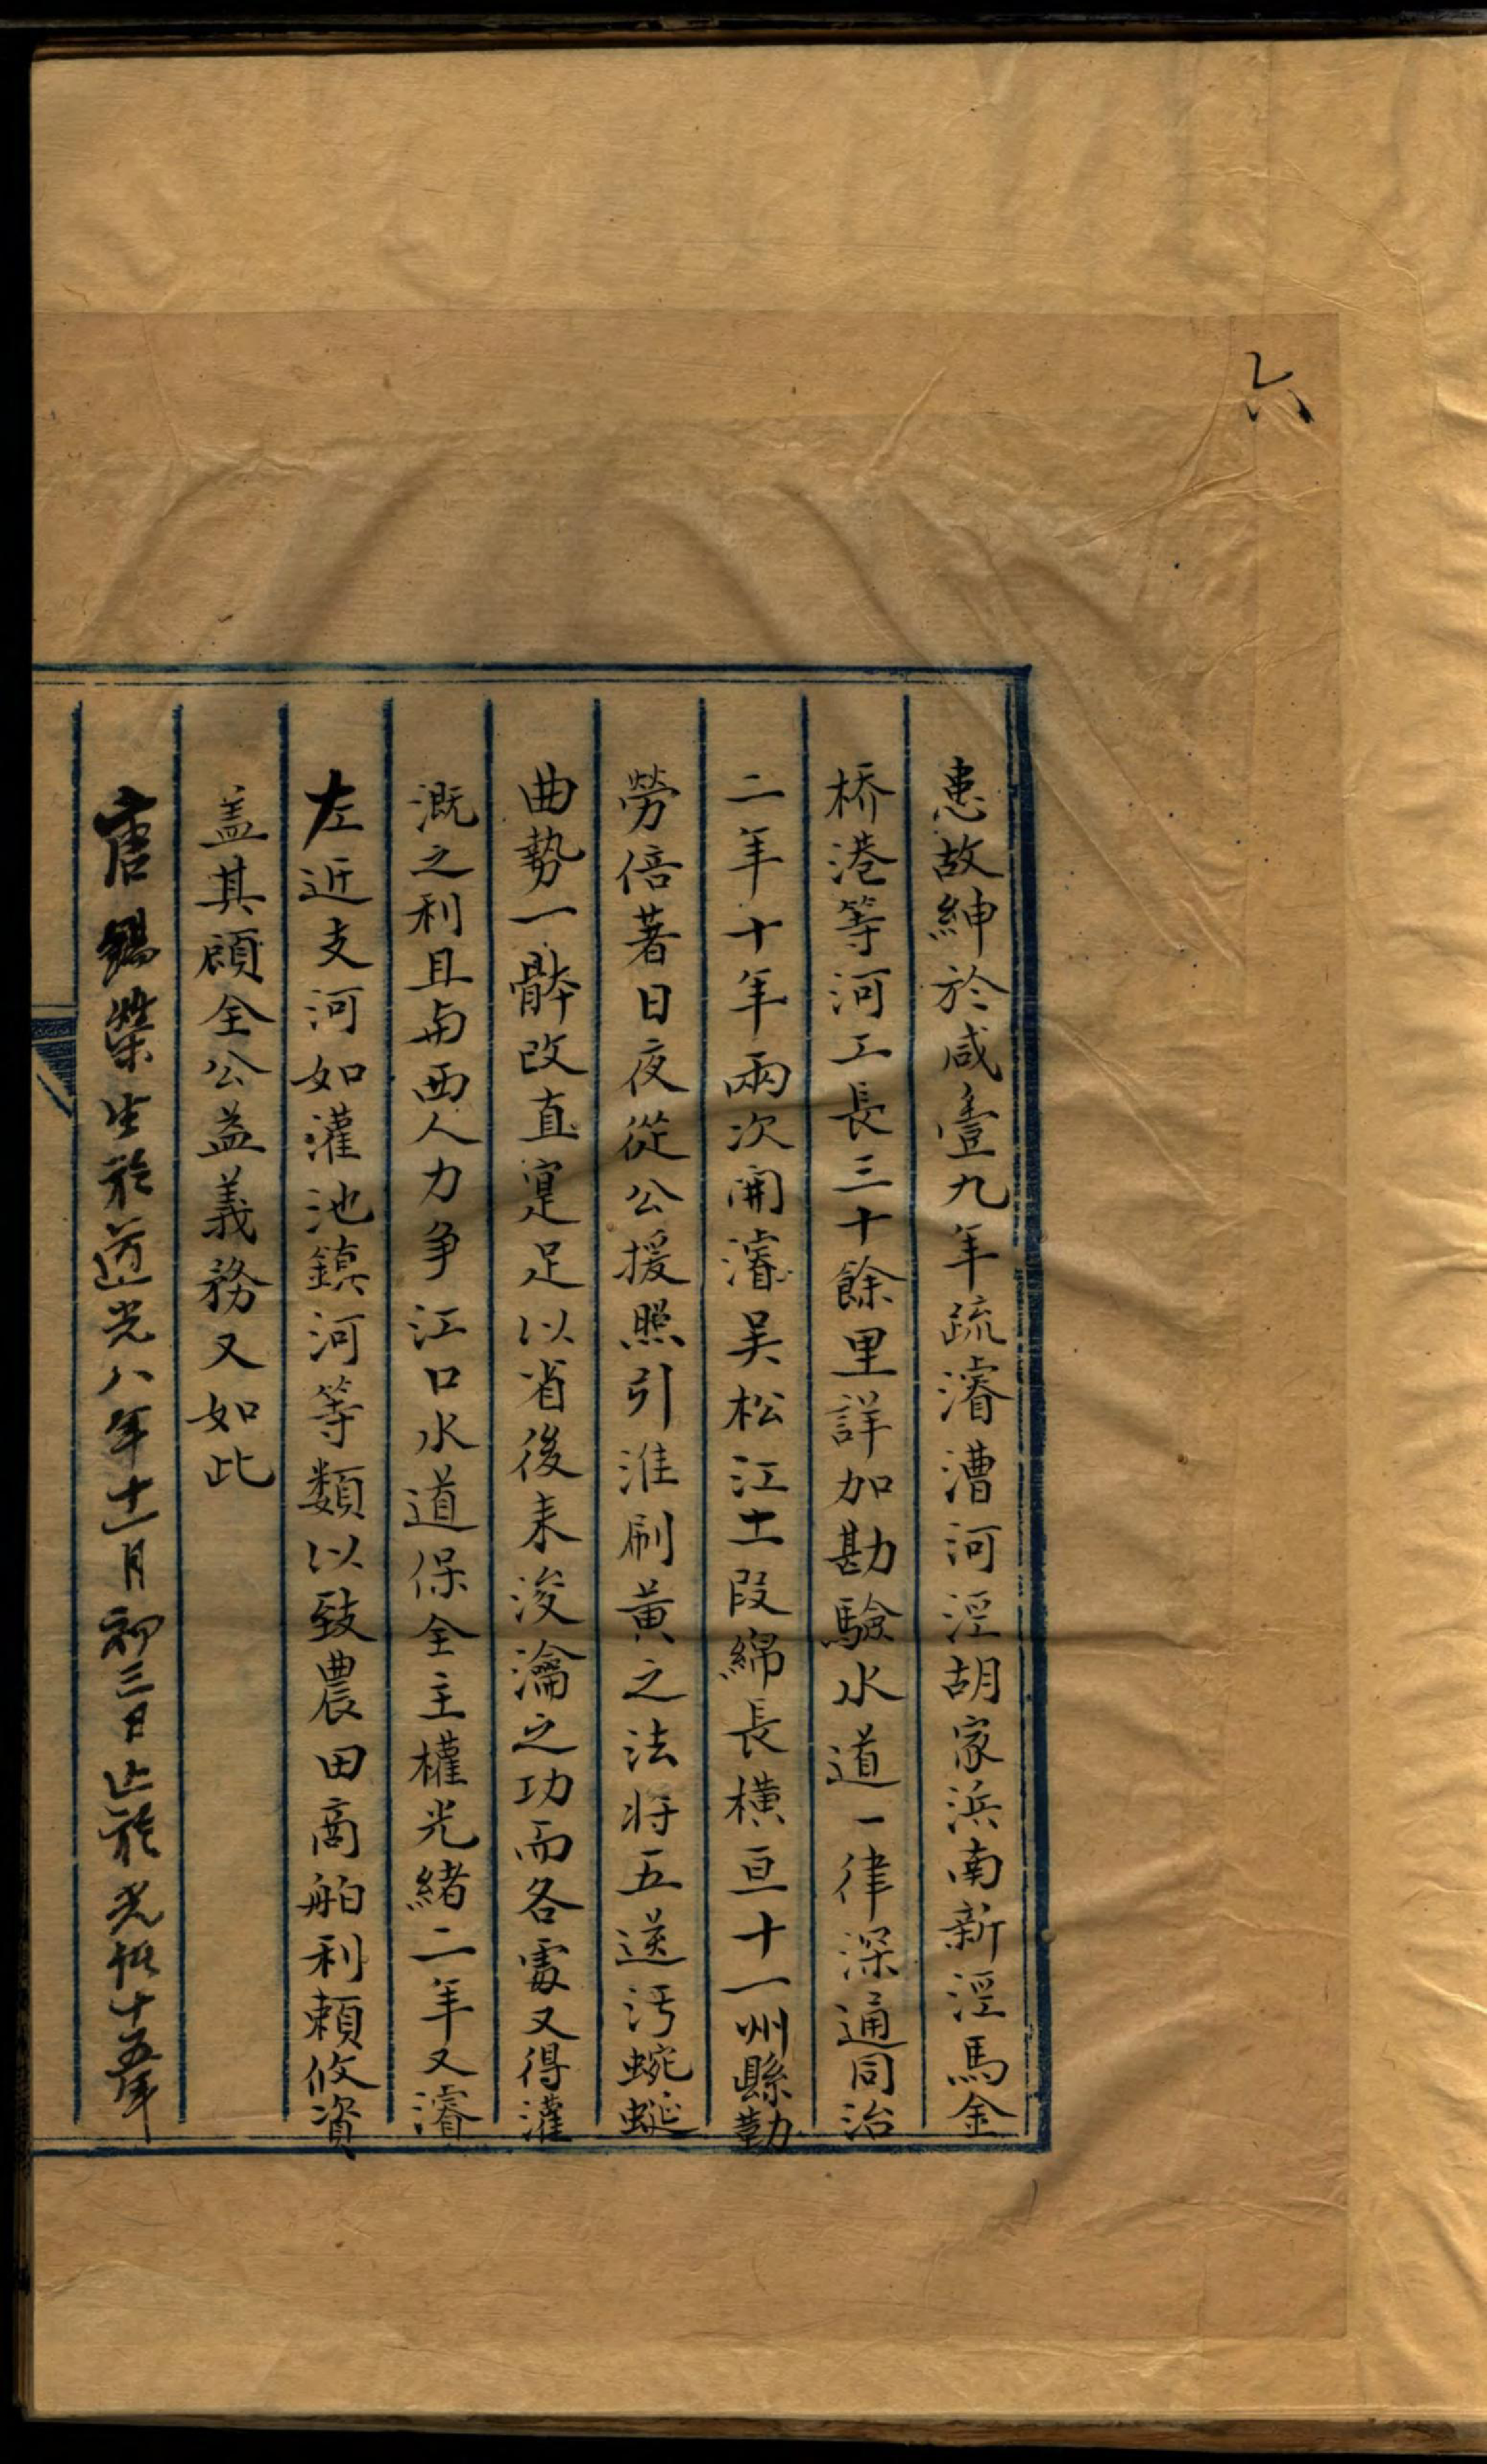 六
患故紳於咸壹九年疏濬漕河涇胡家浜南新涇馬金
桥港等河工長三十餘里詳加勘驗水道一律深通同治
二年十年兩次開濬吴松江土段綿長横亘十一州縣勤
勞倍著日夜從公援照引淮刷黄之法将五送污蜿蜒
曲勢一骵改直寔足以省後来浚瀹之功而各處又得灌
溉之利且与西人力争江口水道保全主權光緒二年又濬
左近支河如灌池鎮河等類以致農田商舶利頼攸資
盖其顧全公益義務又如此
唐錫榮生於道光八年十一月初三日止於光緒十五年